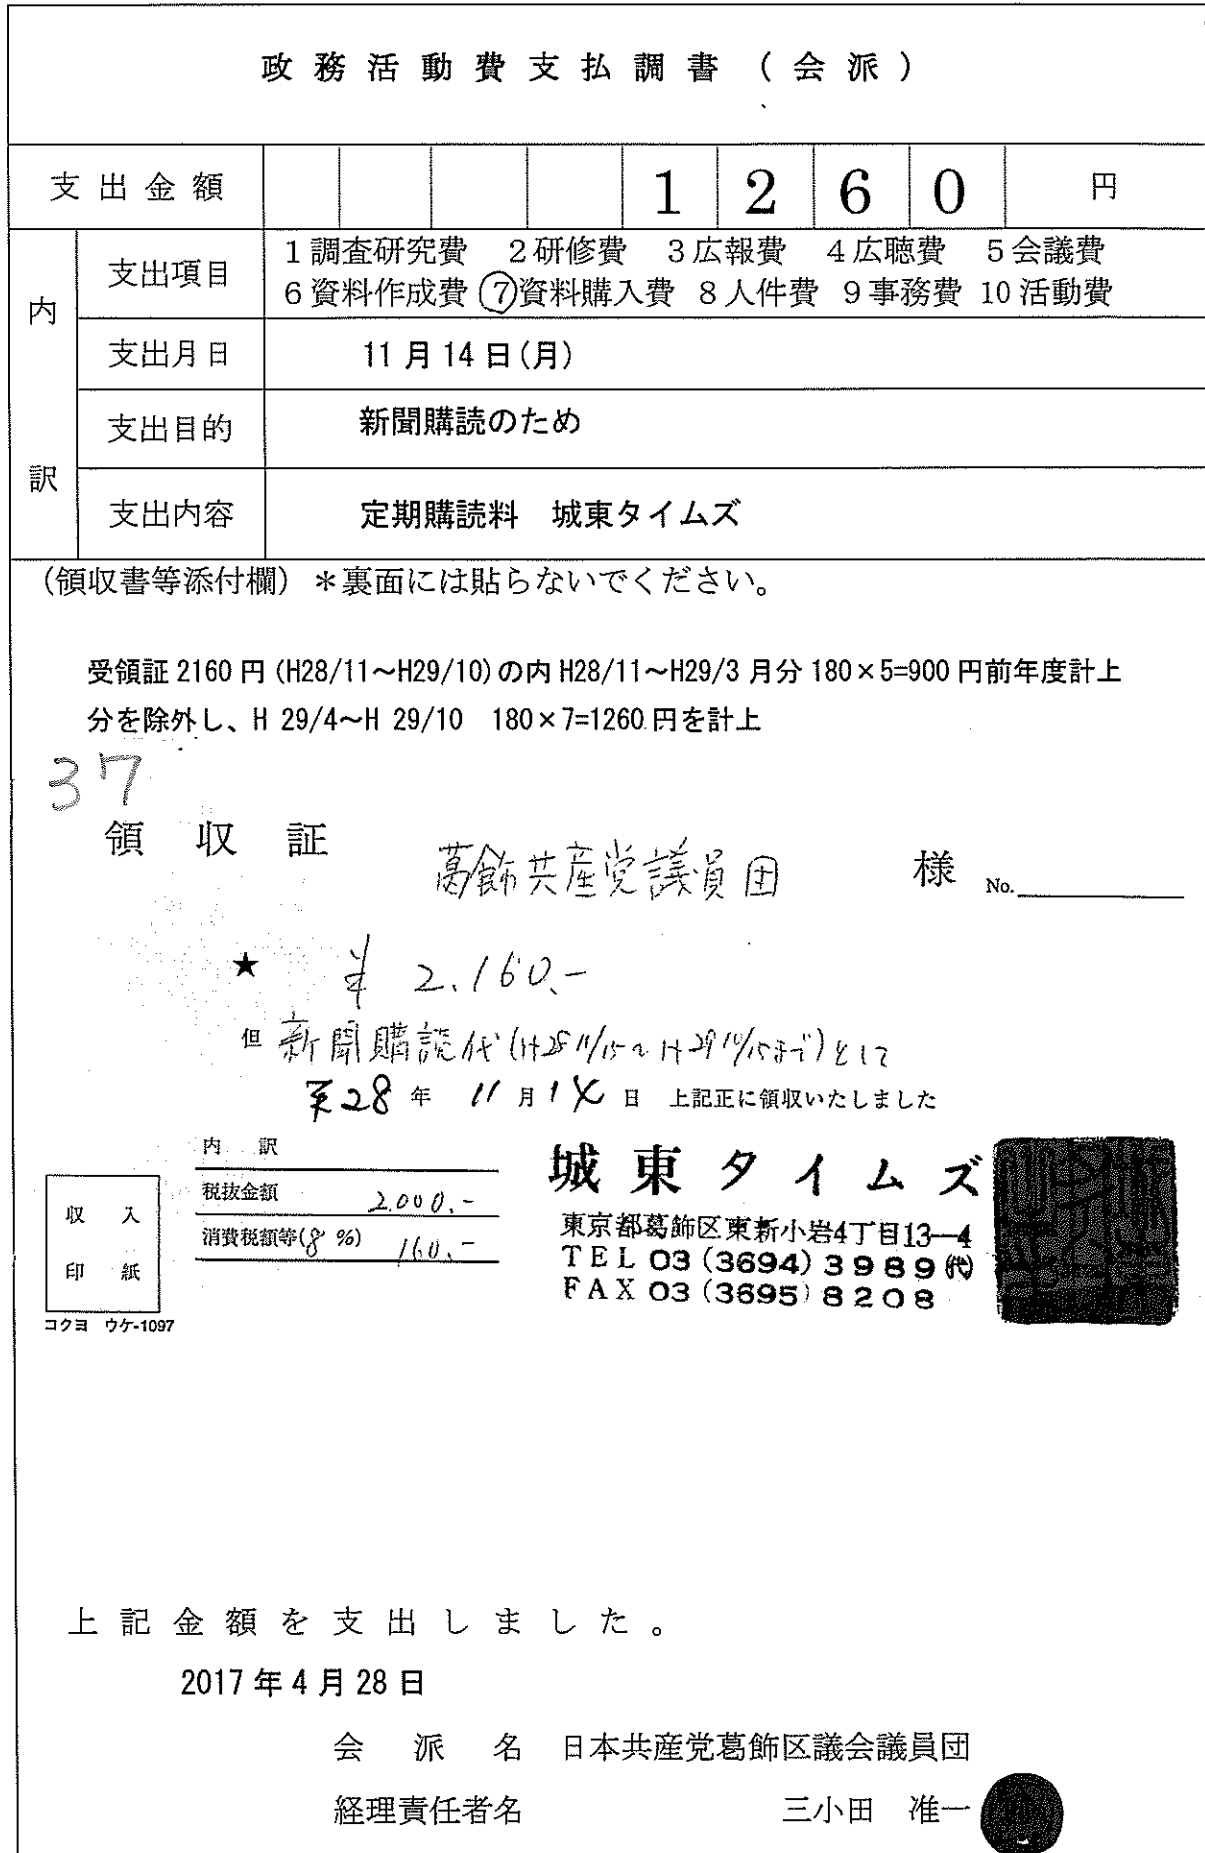 政務活動費支払調書（会派）
支出金額 1 2 6 0 円
内訳
支出項目 1調査研究費 2研修費 3広報費 4広聴費 5会議費
6資料作成費 ⑦資料購入費 8人件費 9事務費 10活動費
支出月日 11月14日(月)
支出目的 新聞購読のため
支出内容 定期購読料 城東タイムズ
（領収書等添付欄）＊裏面には貼らないでください。
受領証2160円(H28/11～H29/10)の内H28/11～H29/3月分180×5=900円前年度計上
分を除外し、H 29/4～H 29/10 180×7=1260円を計上
37
領収証 葛飾共産党議員団 様 No.
★ ¥2,160.-
但 新聞購読代(H28 11/15～H29 10/15まで)として
28年11月14日 上記正に領収いたしました
内訳
税抜金額 2,000.-
消費税額等(8%) 160.-
収入
印紙
コクヨ ウケ-1097
城東タイムズ
東京都葛飾区東新小岩4丁目13―4
TEL 03(3694)3989㈹
FAX 03(3695)8208
上記金額を支出しました。
2017年4月28日
会派名 日本共産党葛飾区議会議員団
経理責任者名 三小田 准一